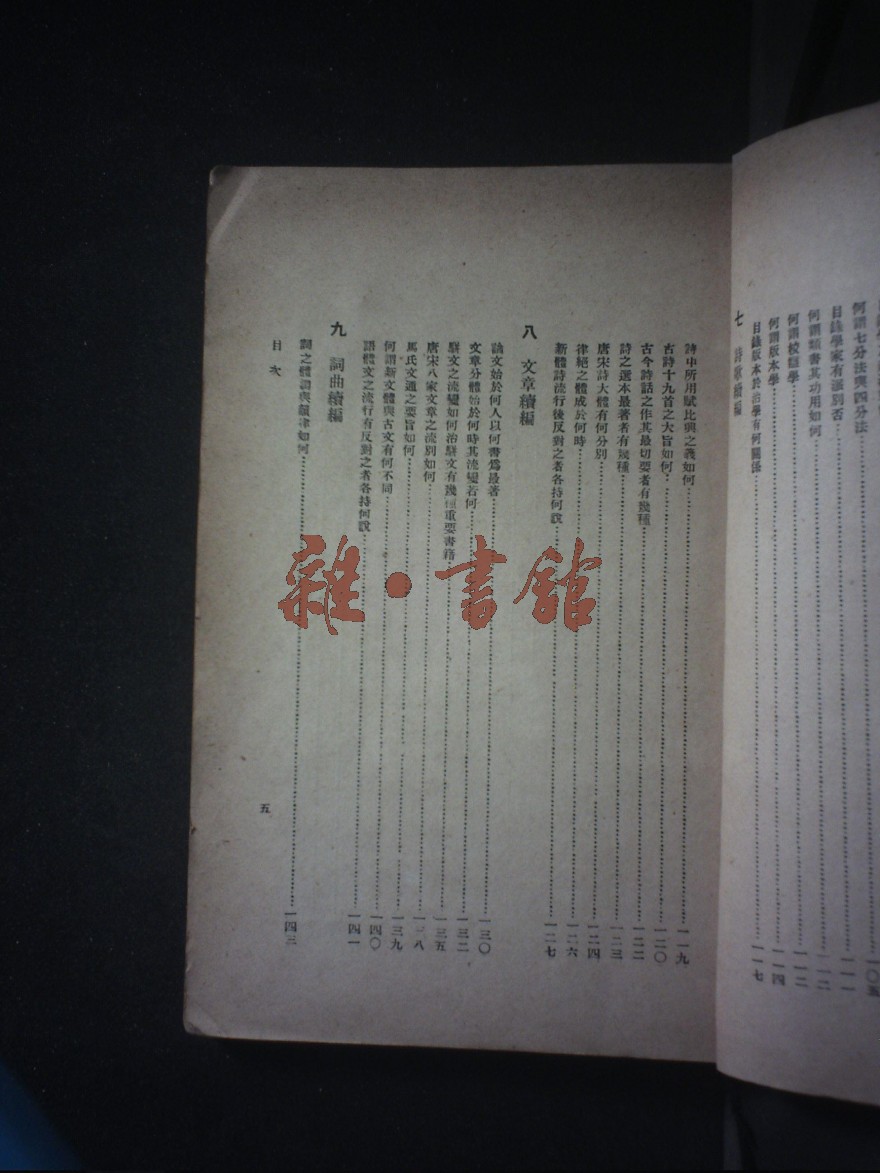 何謂七分法與四分法
目錄學家有派別否……一一一
何謂類書其功用如何……一一二
何謂校讎學……一一二
何謂版本學……一一四
目錄版本於治學有何關係……一一七
七 詩歌續編
詩中所用賦比興之義如何……一一九
古詩十九首之大旨如何……一二〇
古今詩話之作其最切要者有幾種……一二二
詩之選本最著者有幾種……一二三
唐宋詩大體有何分別……一二四
律絕之體成於何時……一二六
新體詩流行後反對之者各持何說……一二七
八 文章續編
論文始於何人以何書爲最著……一三〇
文章分體始於何時其流變若何……一三二
駢文之流變如何治駢文有幾種重要書籍……一三五
唐宋八家文章之流別如何……一三八
馬氏文通之要旨如何……一三九
何謂新文體與古文有何不同……一四〇
語體文之流行有反對之者各持何說……一四一
九 詞曲續編
詞之體調與韻律如何……一四三
目次
五
雜·書館